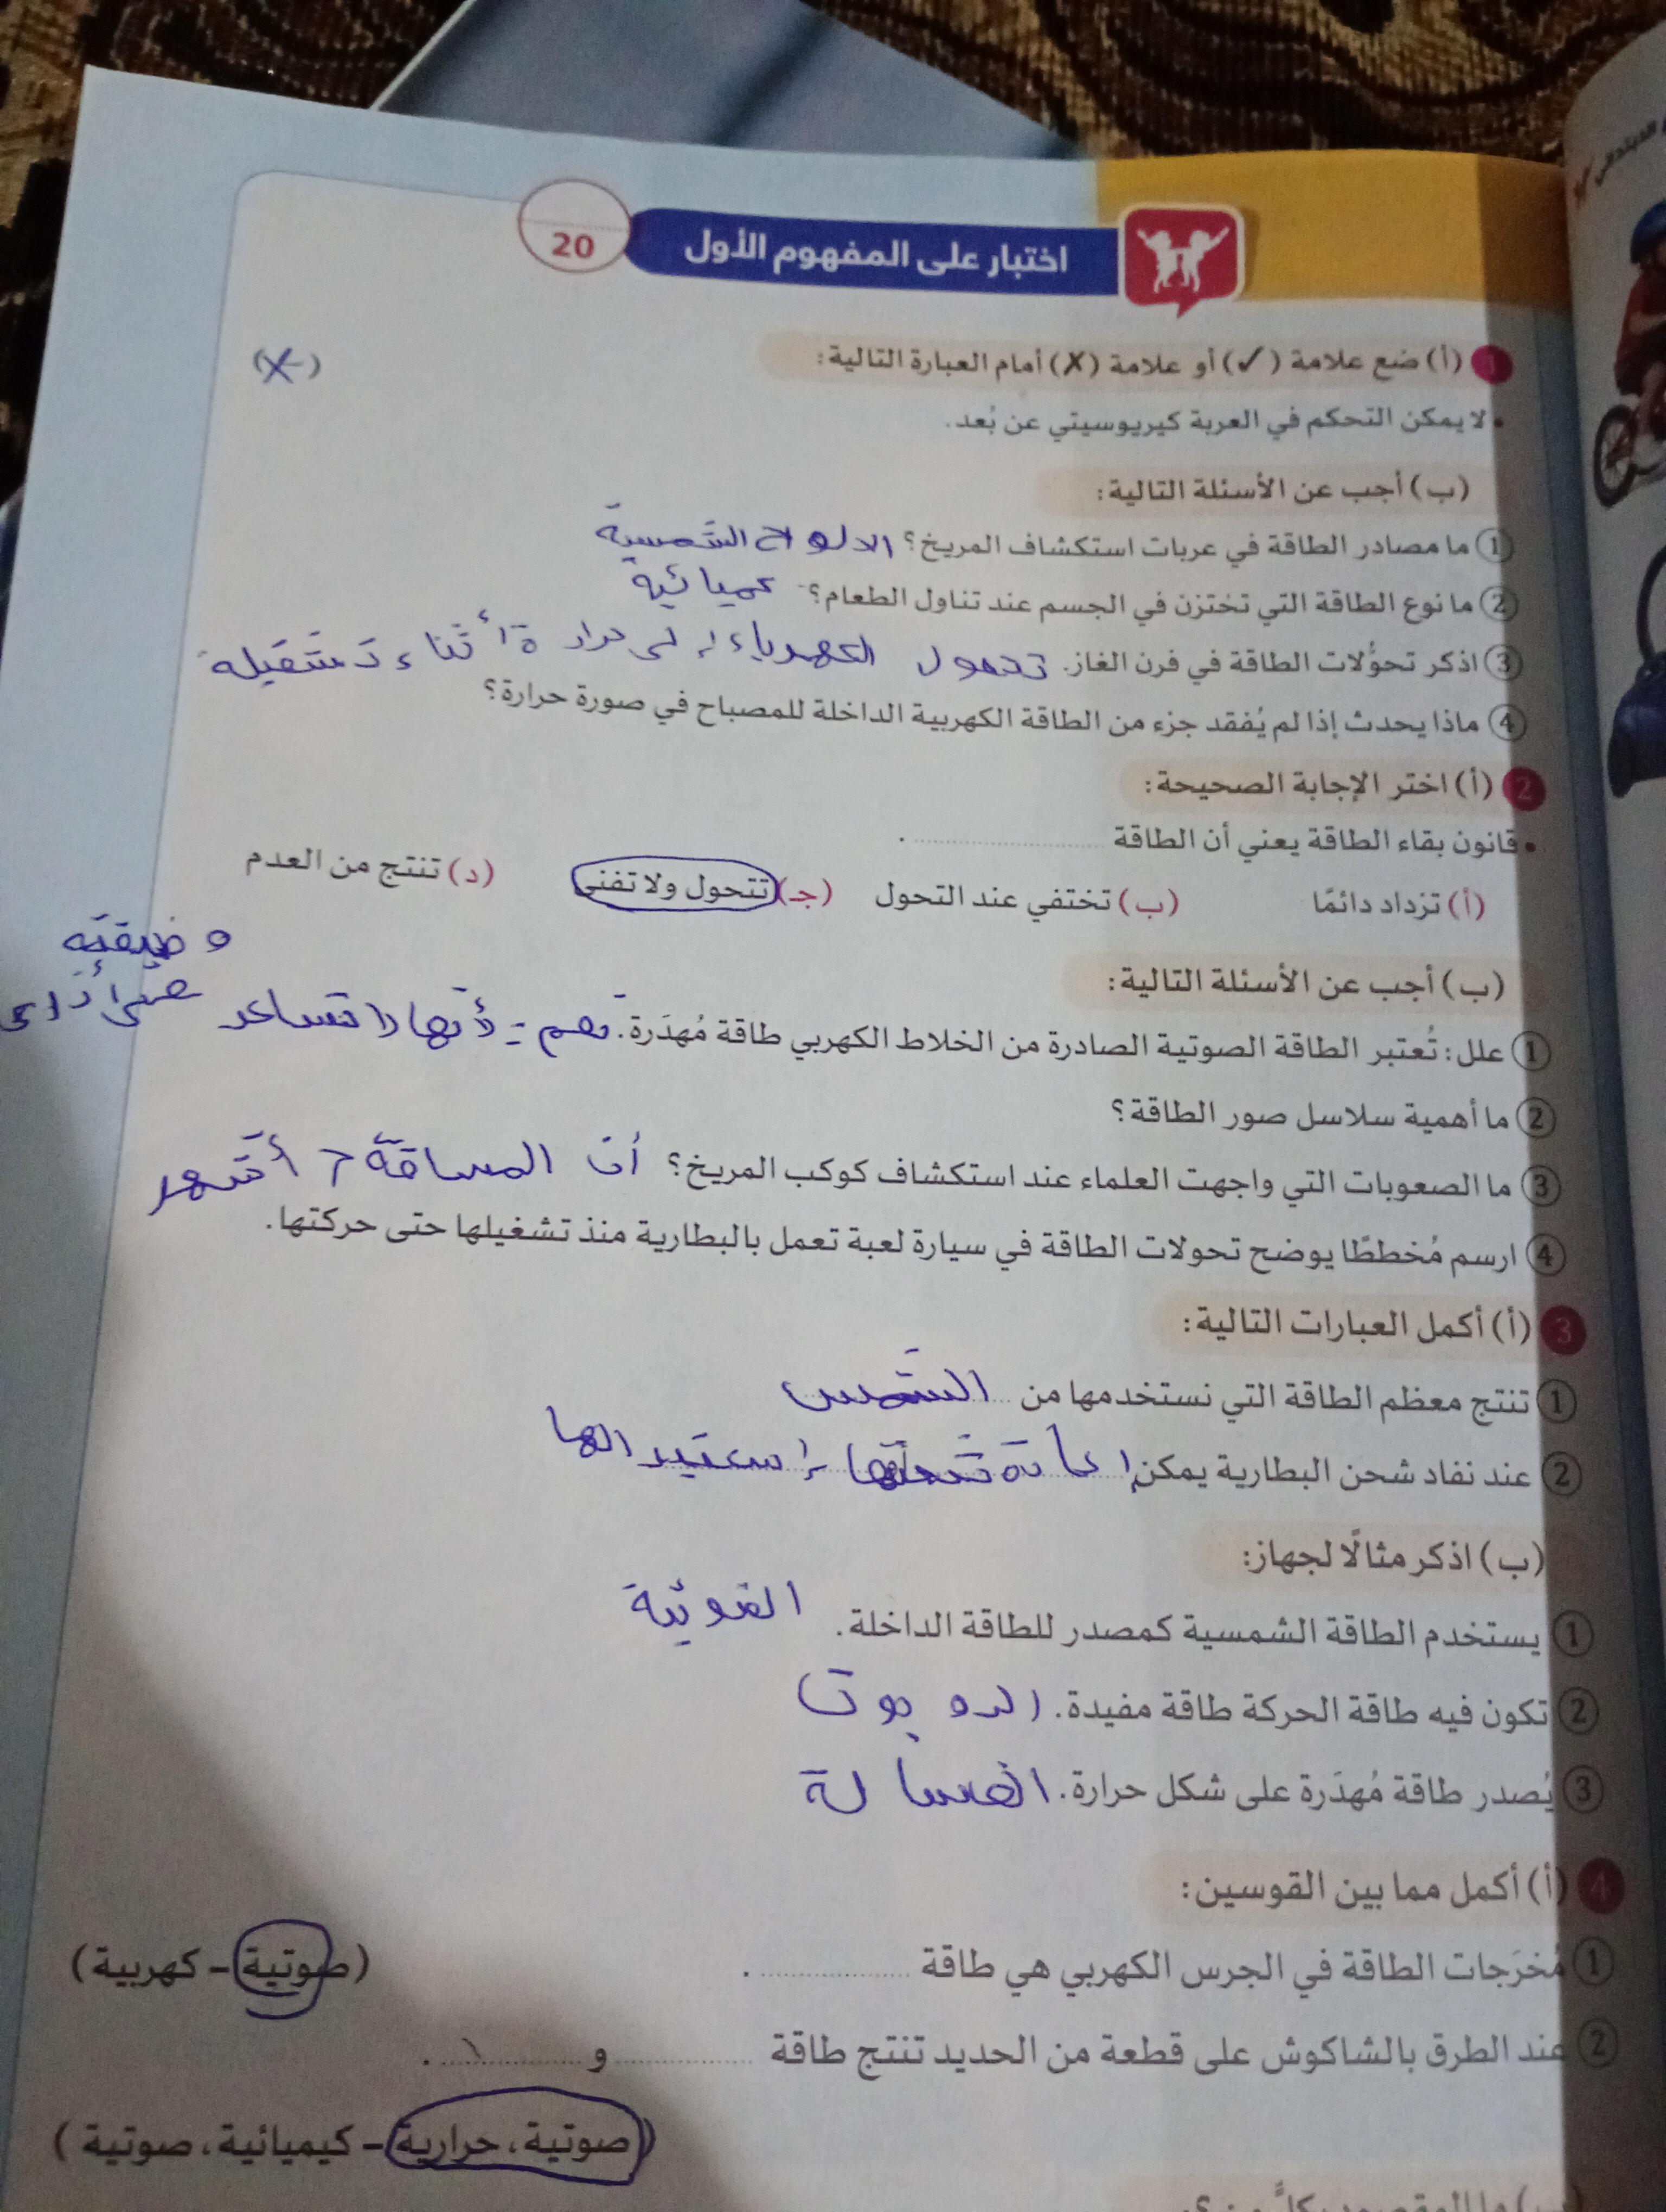 اختبار على المفهوم الأول
20
1 (أ) ضع علامة (✓) أو علامة (✗) أمام العبارة التالية: (X)
• لا يمكن التحكم في العربة كيريوسيتي عن بُعد.
(ب) أجب عن الأسئلة التالية:
① ما مصادر الطاقة في عربات استكشاف المريخ؟ الالواح الشمسية
② ما نوع الطاقة التي تختزن في الجسم عند تناول الطعام؟ كميائية
③ اذكر تحوُّلات الطاقة في فرن الغاز. تحول الكهرباء إلى حرارة أثناء تشغيله
④ ماذا يحدث إذا لم يُفقد جزء من الطاقة الكهربية الداخلة للمصباح في صورة حرارة؟
2 (أ) اختر الإجابة الصحيحة:
• قانون بقاء الطاقة يعني أن الطاقة ............
(أ) تزداد دائمًا (ب) تختفي عند التحول (جـ) تتحول ولا تفنى (د) تنتج من العدم
(ب) أجب عن الأسئلة التالية:
① علل: تُعتبر الطاقة الصوتية الصادرة من الخلاط الكهربي طاقة مُهدَرة. نعم - لأنها لا تساعد
② ما أهمية سلاسل صور الطاقة؟
③ ما الصعوبات التي واجهت العلماء عند استكشاف كوكب المريخ؟ أن المسافة أشهر
④ ارسم مُخططًا يوضح تحولات الطاقة في سيارة لعبة تعمل بالبطارية منذ تشغيلها حتى حركتها.
3 (أ) أكمل العبارات التالية:
① تنتج معظم الطاقة التي نستخدمها من الشمس
② عند نفاد شحن البطارية يمكن إعادة شحنها
(ب) اذكر مثالًا لجهاز:
① يستخدم الطاقة الشمسية كمصدر للطاقة الداخلة.
② تكون فيه طاقة الحركة طاقة مفيدة. الروبوت
③ يُصدر طاقة مُهدَرة على شكل حرارة. الغسالة
4 (أ) أكمل مما بين القوسين:
① مُخرَجات الطاقة في الجرس الكهربي هي طاقة ............ (صوتية – كهربية)
② عند الطرق بالشاكوش على قطعة من الحديد تنتج طاقة ............ و ............
(صوتية، حرارية – كيميائية، صوتية)